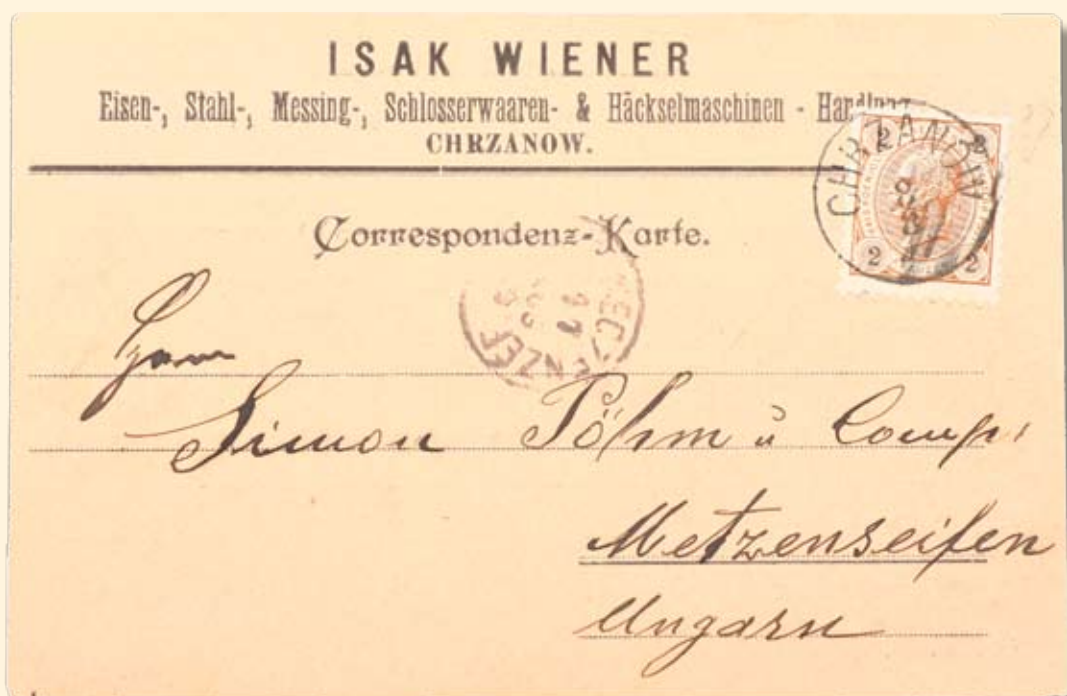 ISAK WIENER
Eisen-, Stahl-, Messing-, Schlosserwaaren- & Häckselmaschinen - Handlung
CHRZANOW.
2 2
CHRZANOW
2 2
Correspondenz-Karte.
Herrn
Simon Pöhm ŭ Comp:
Metzenseifen
Ungarn